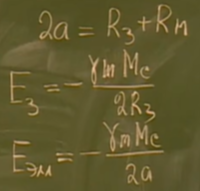 2a = R₃ + Rм
E₃ = - γ m Mc / 2R₃
Eэм = - γ m Mc / 2a